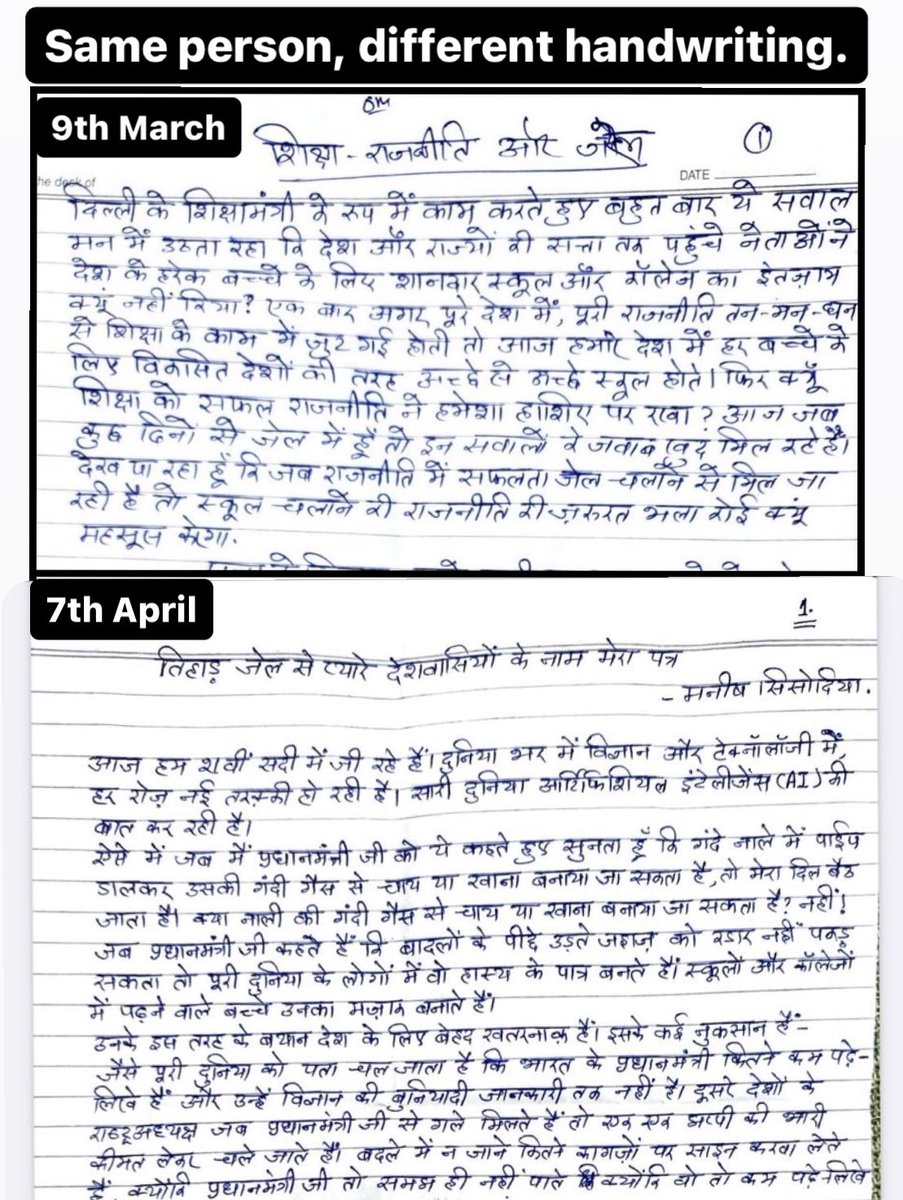 Same person, different handwriting.
9th March
ॐ
शिक्षा - राजनीति और जेल
1
he desk of
DATE
दिल्ली के शिक्षामंत्री के रूप में काम करते हुए बहुत बार ये सवाल
मन में उठता रहा कि देश और राज्यों की सत्ता तक पहुंचे नेताओं ने
देश के हरेक बच्चे के लिए शानदार स्कूल और कॉलेज का इंतज़ाम
क्यूं नहीं किया? एक बार अगर पूरे देश में, पूरी राजनीति तन-मन-धन
से शिक्षा के काम में जुट गई होती तो आज हमारे देश में हर बच्चे के
लिए विकसित देशों की तरह अच्छे से अच्छे स्कूल होते। फिर क्यूँ
शिक्षा को सफल राजनीति ने हमेशा हाशिए पर रखा? आज जब
कुछ दिनों से जेल में हूँ तो इन सवालों के जवाब खुद मिल रहे हैं।
देख पा रहा हूँ कि जब राजनीति में सफलता जेल चलाने से मिल जा
रही है तो स्कूल चलाने की राजनीति की ज़रुरत भला कोई क्यूं
महसूस करेगा.
7th April
1.
तिहाड़ जेल से प्यारे देशवासियों के नाम मेरा पत्र
- मनीष सिसोदिया.
आज हम 21वीं सदी में जी रहे हैं। दुनिया भर में विज्ञान और टेक्नॉलॉजी में,
हर रोज़ नई तरक्की हो रही है। सारी दुनिया आर्टिफिशियल इंटेलीजेंस (AI) की
बात कर रही है।
ऐसे में जब मैं प्रधानमंत्री जी को ये कहते हुए सुनता हूँ कि गंदे नाले में पाईप
डालकर उसकी गंदी गैस से चाय या खाना बनाया जा सकता है, तो मेरा दिल बैठ
जाता है। क्या नाली की गंदी गैस से चाय या खाना बनाया जा सकता है? नहीं!
जब प्रधानमंत्री जी कहते हैं कि बादलों के पीछे उड़ते जहाज़ को रडार नहीं पकड़
सकता तो पूरी दुनिया के लोगों में वो हास्य के पात्र बनते हैं। स्कूलों और कॉलेजों
में पढ़ने वाले बच्चे उनका मज़ाक बनाते हैं।
उनके इस तरह के बयान देश के लिए बेहद खतरनाक हैं। इसके कई नुकसान हैं-
जैसे पूरी दुनिया को पता चल जाता है कि भारत के प्रधानमंत्री कितने कम पढ़े-
लिखे हैं और उन्हें विज्ञान की बुनियादी जानकारी तक नहीं है। दूसरे देशों के
राष्ट्रअध्यक्ष जब प्रधानमंत्री जी से गले मिलते हैं तो एक एक झप्पी की भारी
कीमत लेकर चले जाते हैं। बदले में न जाने कितने कागज़ों पर साइन करवा लेते
हैं क्योंकि प्रधानमंत्री जी तो समझ ही नहीं पाते क्योंकि वो तो कम पढ़े लिखे